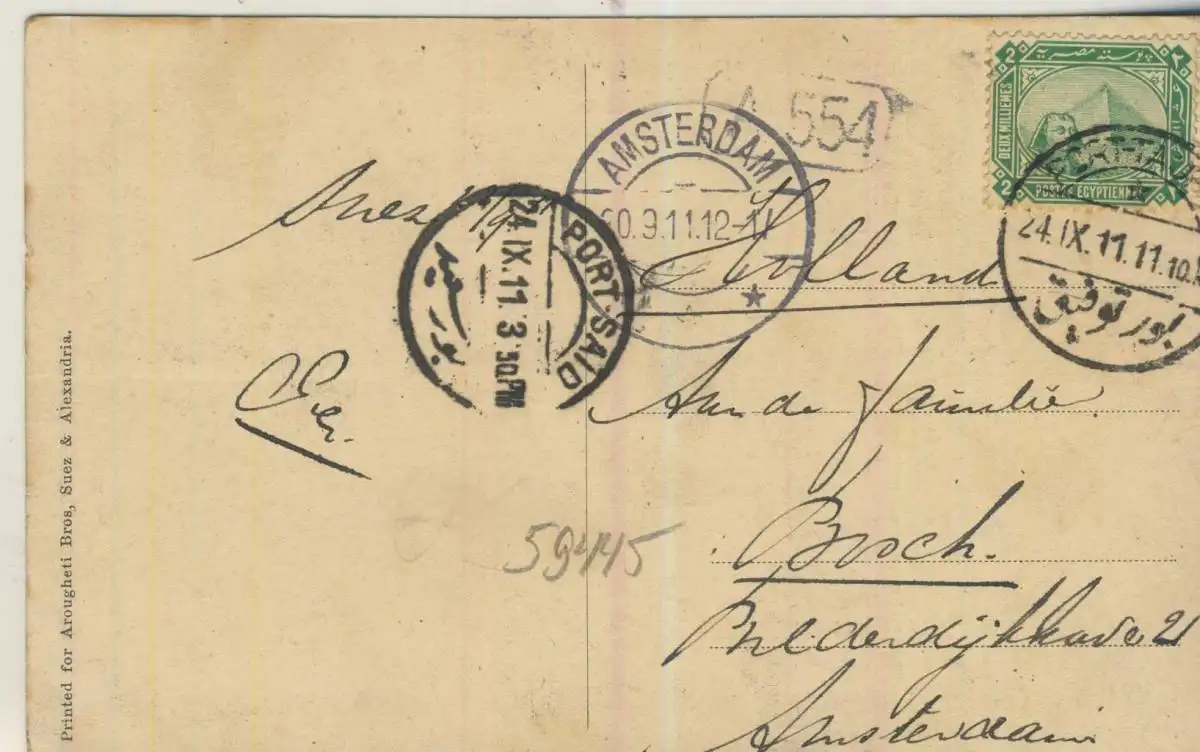 Printed for Arougheti Bros, Suez & Alexandria.
Suez
PORT-SAID
24.IX.11.3 30.PM
بور سعيد
AMSTERDAM
30.9.11.12-1
A 554
2
٢
بوستة مصرية
DEUX MILLIEMES
2
POSTES EGYPTIENNES
PORT-TA
24.IX.11.11.10
بور توفيق
Holland
Aan de Familie
Bosch.
Bilderdijkkade 21
Amsterdam
59445